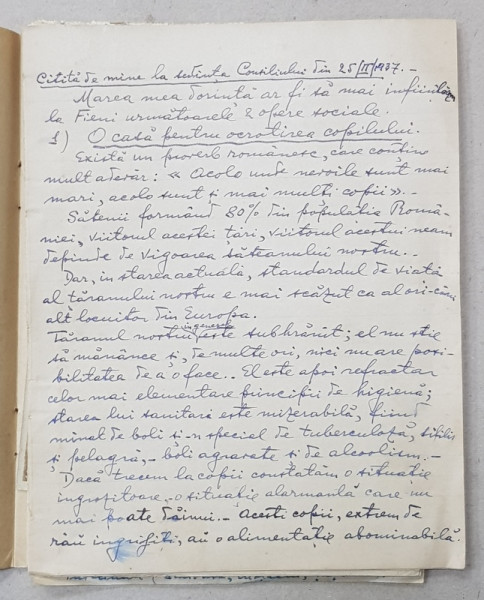 Citită de mine la ședința Consiliului din 25/II/1937. –
Marea mea dorință ar fi să mai înființăm
la Fieni următoarele 2 opere sociale.
1) O casă pentru ocrotirea copilului.
Există un proverb românesc, care conține
mult adevăr: « Acolo unde nevoile sunt mai
mari, acolo sunt și mai mulți copii ». –
Sătenii formând 80% din populația Româ-
niei, viitorul acestei țări, viitorul acestui neam
depinde de vigoarea săteanului nostru. .
Dar, în starea actuală, standardul de viață
al țăranului nostru e mai scăzut ca al ori-cărui
alt locuitor din Europa.
în general
Țăranul nostru este subhrănit; el nu știe
să mănânce și, de multe ori, nici nu are posi-
bilitatea de a o face.. El este apoi refractar
celor mai elementare principii de higienă;
starea lui sanitară este mizerabilă, fiind
minat de boli și-n special de tuberculoză, sifilis
și pelagră, – boli agravate și de alcoolism. –
Dacă trecem la copii constatăm o situație
îngrozitoare, – o situație alarmantă care nu
mai poate dăinui. – Acești copii, extrem de
rău îngrijiți, au o alimentație abominabilă.